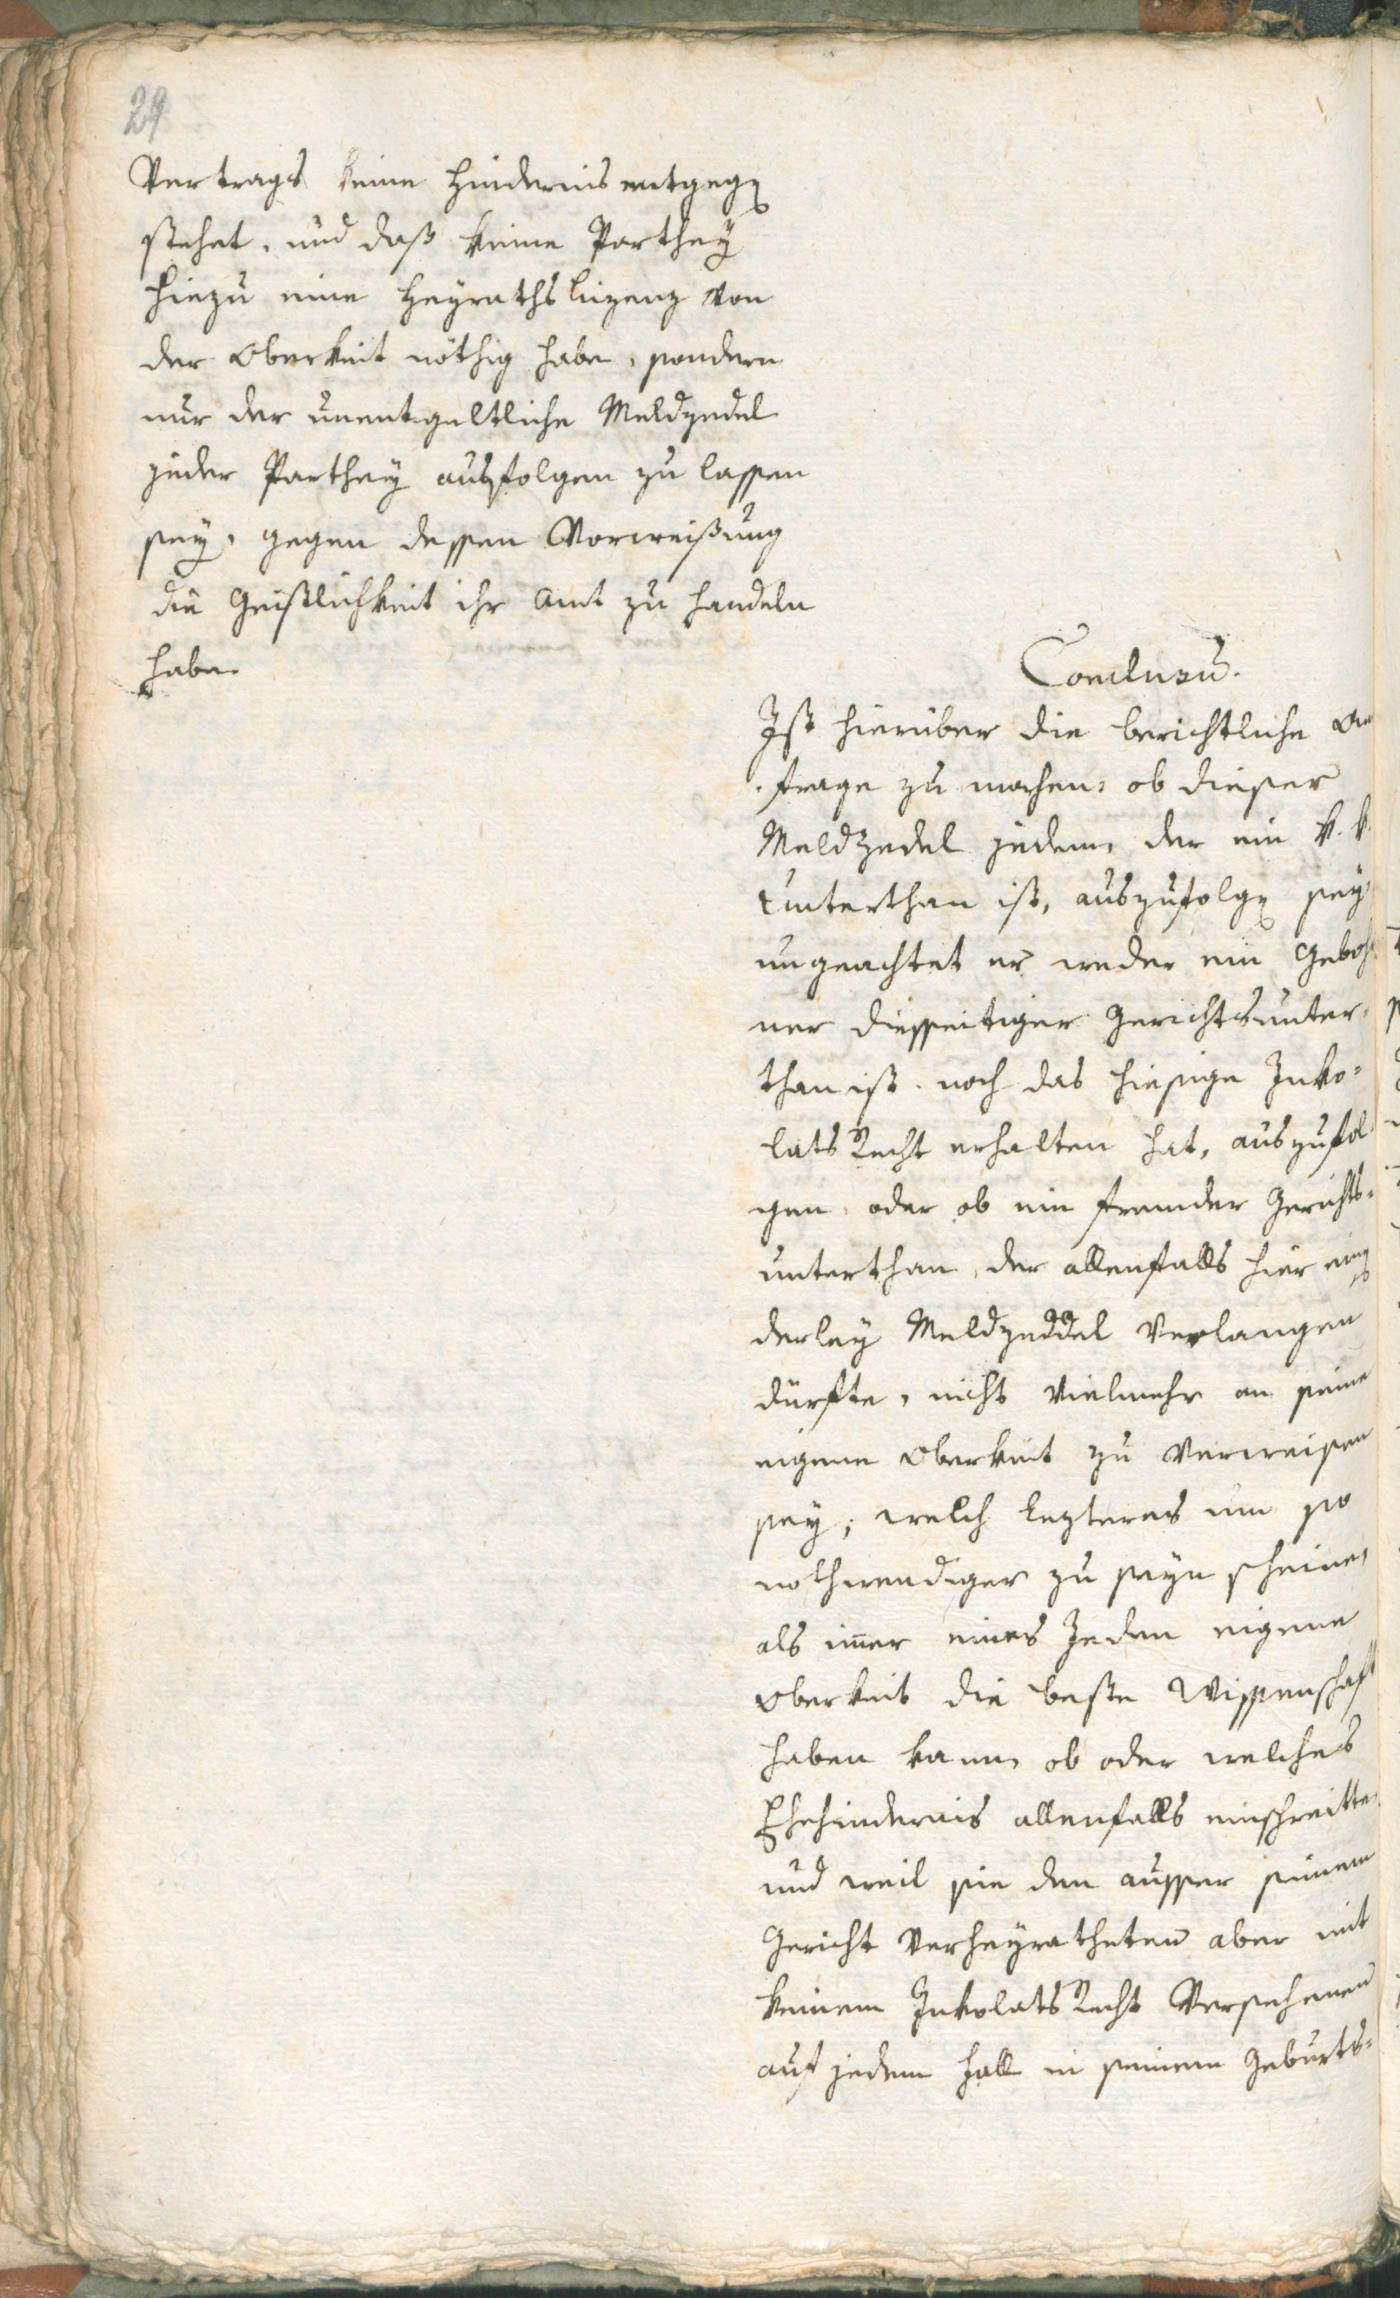 29
Vertrags keine Hindernis entgegen
stehet, und daß keine Parthey
hiezu eine Heyraths lizenz von
der Oberkeit nöthig habe, sondern
nur der unentgeltliche Meldzedel
jeder Parthey ausfolgen zu lassen
sey, gegen dessen Vorweißung
die Geistlichkeit ihr Amt zu handeln
habe.
Conclusū.
Ist hierüber die berichtliche An
frage zu machen: ob dieser
Meldzedel jedem, der ein k. k.
Unterthan ist, auszufolgen sey,
ungeachtet er weder ein geboh
ner diesseitiger Gerichtsunter,
than ist, noch das hiesige Inko=
lats Recht erhalten hat, auszufol
gen, oder ob ein fremder Gerichts=
unterthan, der allenfalls hier einen
derley Meldzeddel verlangen
dürfte, nicht vielmehr an seine
eigene Oberkeit zu verweisen
sey; welch lezteres um so
nothwendiger zu seyn scheine,
als im̅er eines Jeden eigene
Oberkeit die beste Wissenschaft
haben kann, ob oder welches
Ehehindernis allenfalls einschreitte,
und weil sie den ausser seinem
Gericht verheyratheten aber mit
keinem Inkolats Recht Versehenen
auf jedem Fall in seinem Geburts=